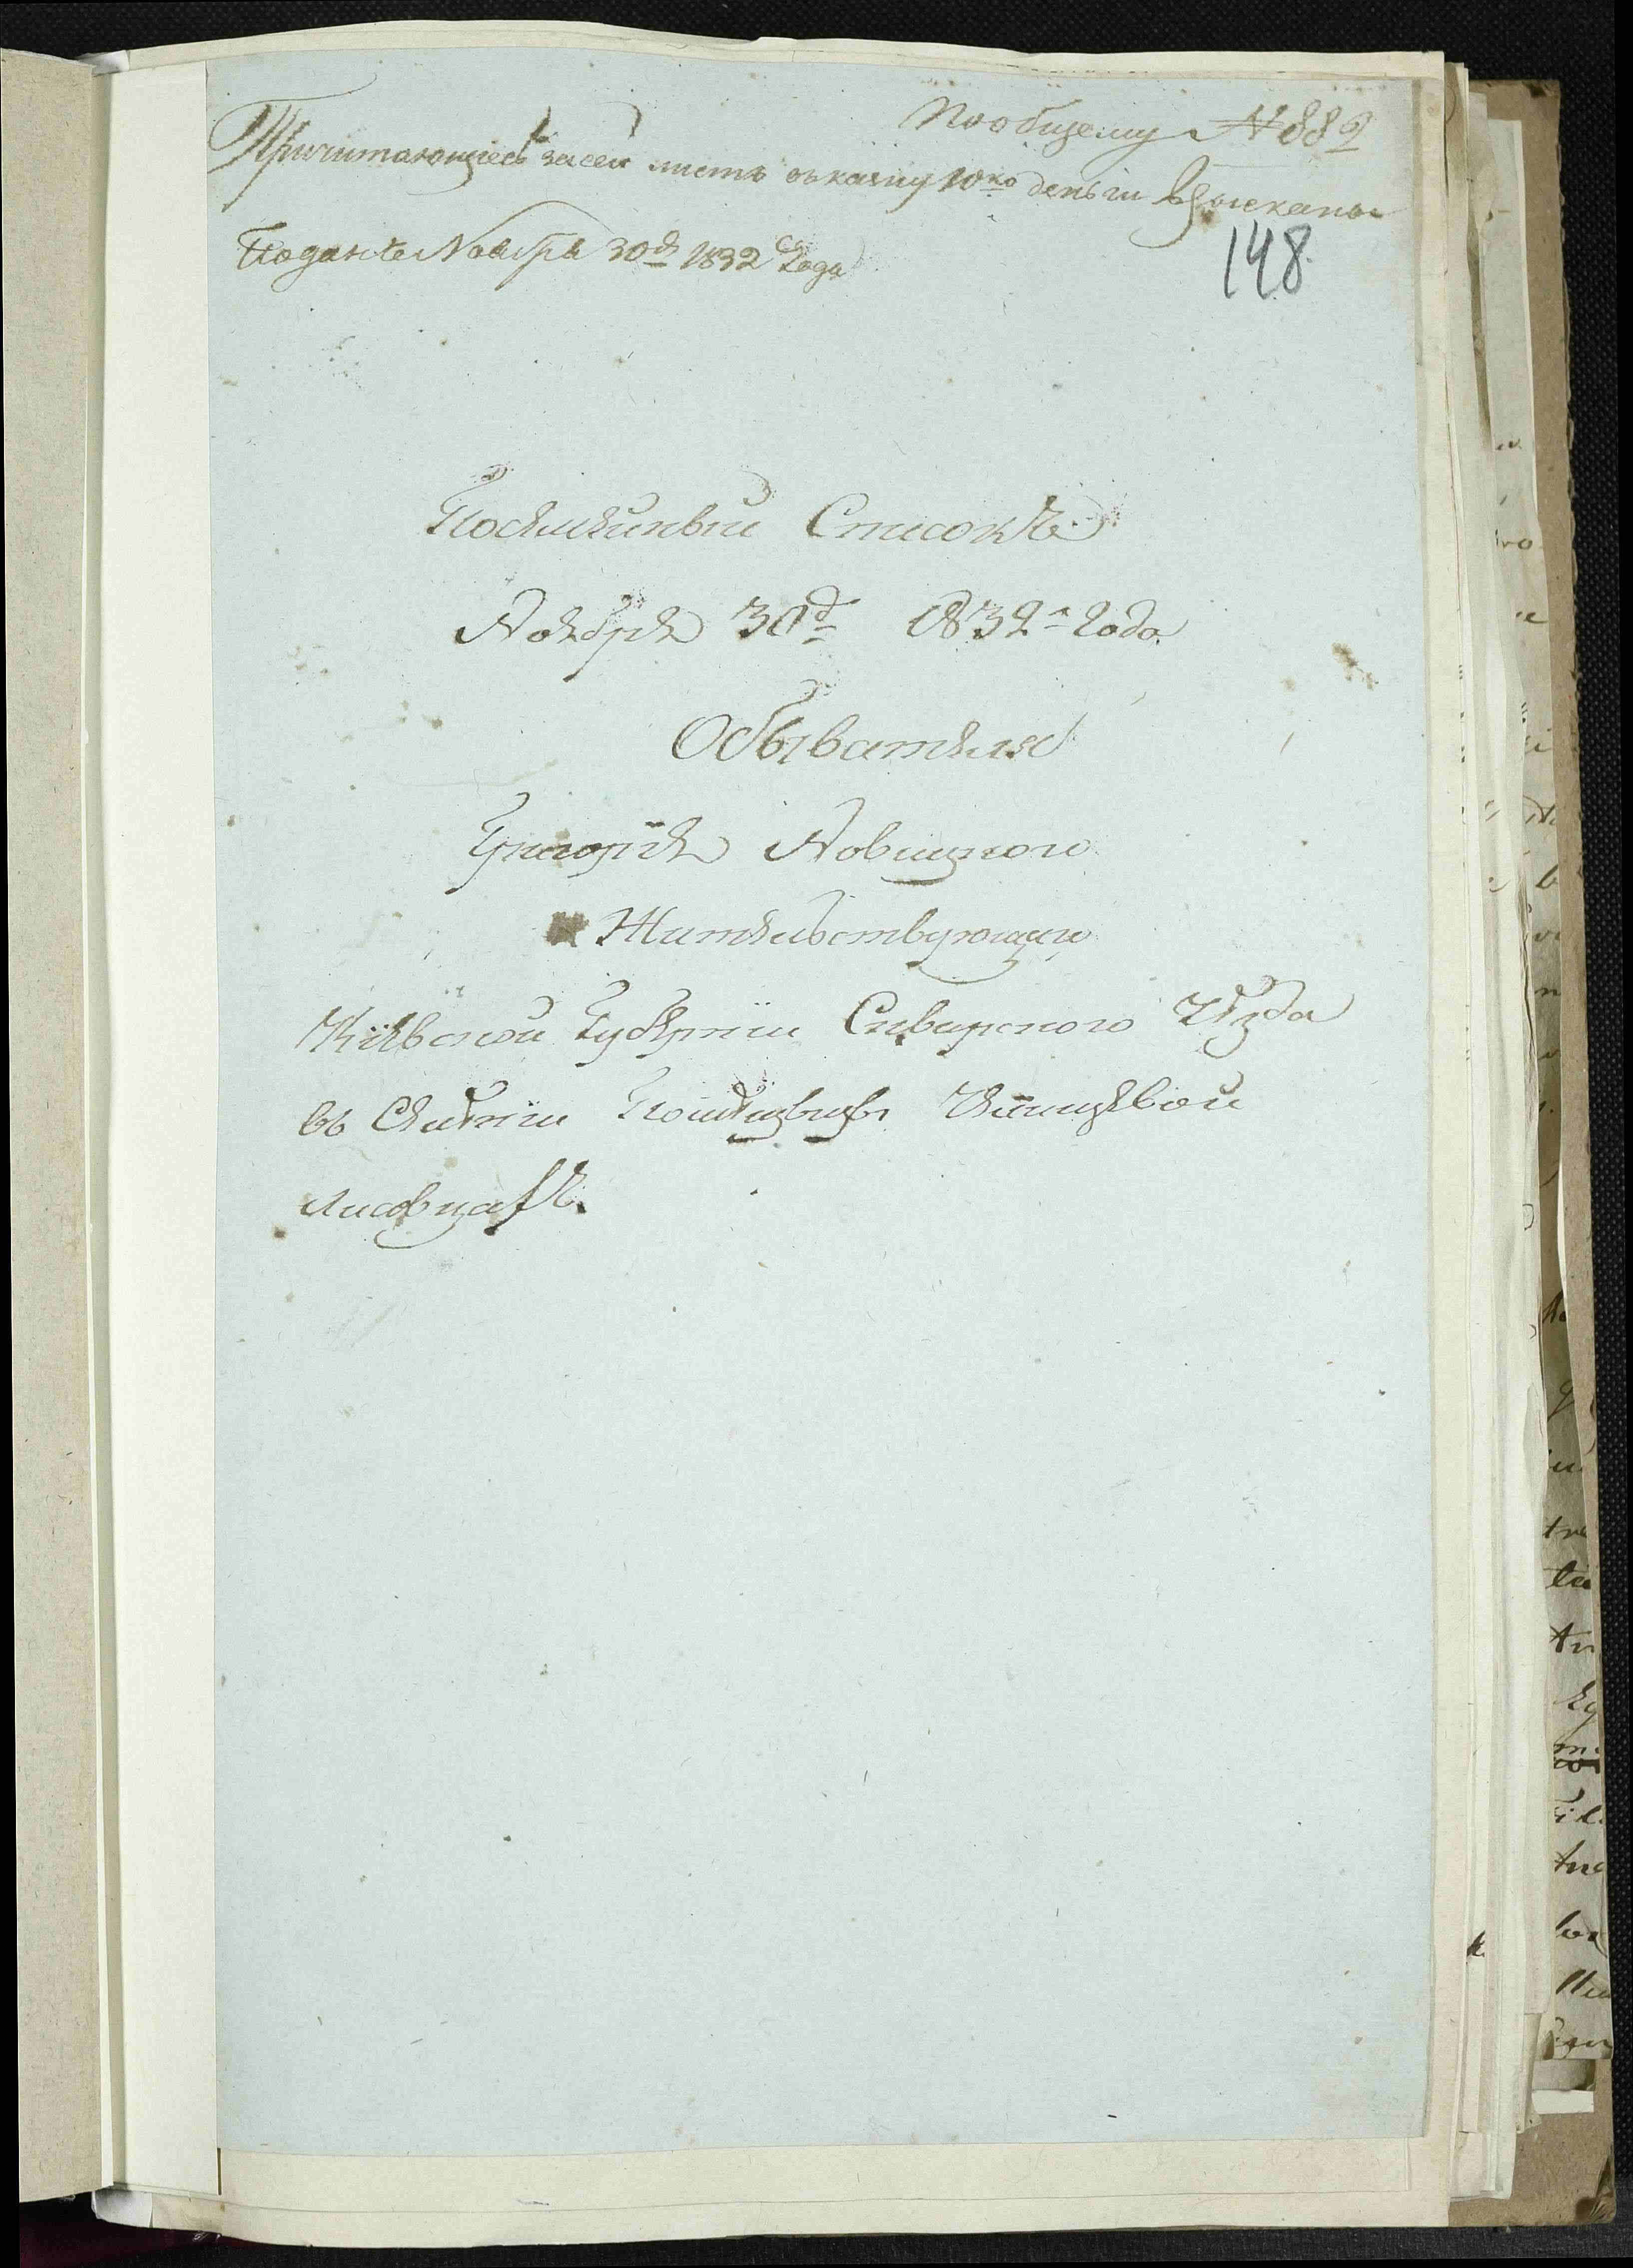 Пообщему № 882
Причитающіесь засей листъ въказну 10ко деньги взысканы
148.
Поданъ Ноября 30д 1832го Года
Посемейный Списокъ
Ноября 30д 1832го Года
Обывателя
Григорія Новицкого
Жительствующаго
Кіевской Губерніи Сквирского Уѣзда
въ Селеніи